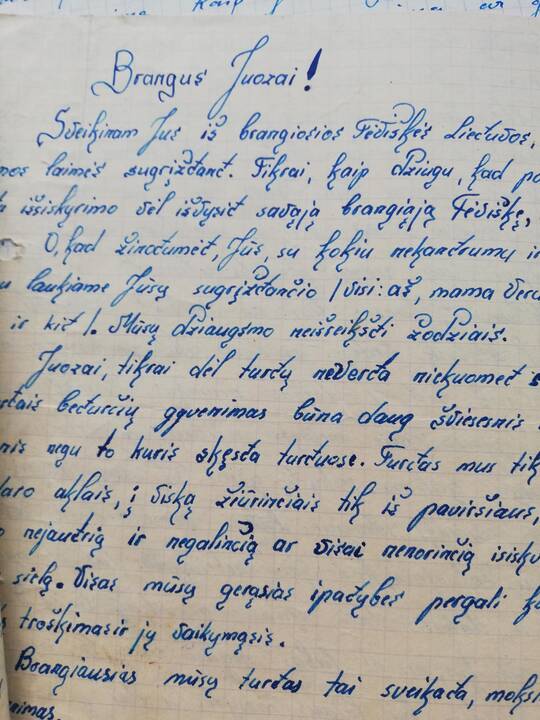 Brangus Juozai!
Sveikinam Jus iš brangiosios Tėviškės Lietuvos,
mos laimės sugrįžtant. Tikrai, kaip džiugu, kad
išsiskyrimo vėl išvysit savąją brangiąją Tėviškę,
O, kad žinotumėt, Jūs, su kokiu nekantrumu
laukiame Jūsų sugrįžtančio /visi: aš, mama
ir kit/. Mūsų džiaugsmo neišreikšti žodžiais.
Juozai, tikrai dėl turtų neverta niekuomet
beturčių gyvenimas būna daug šviesesnis
nis negu to kuris skęsta turtuose. Turtas mus tik
daro aklais, į viską žiūrinčiais tik iš paviršiaus,
nejautrią ir negalinčią ar visai nenorinčią
sielą. Visas mūsų gerąsias ipatybes pergali
troškimasir jų vaikymąsis.
Brangiausias mūsų turtas tai sveikata,